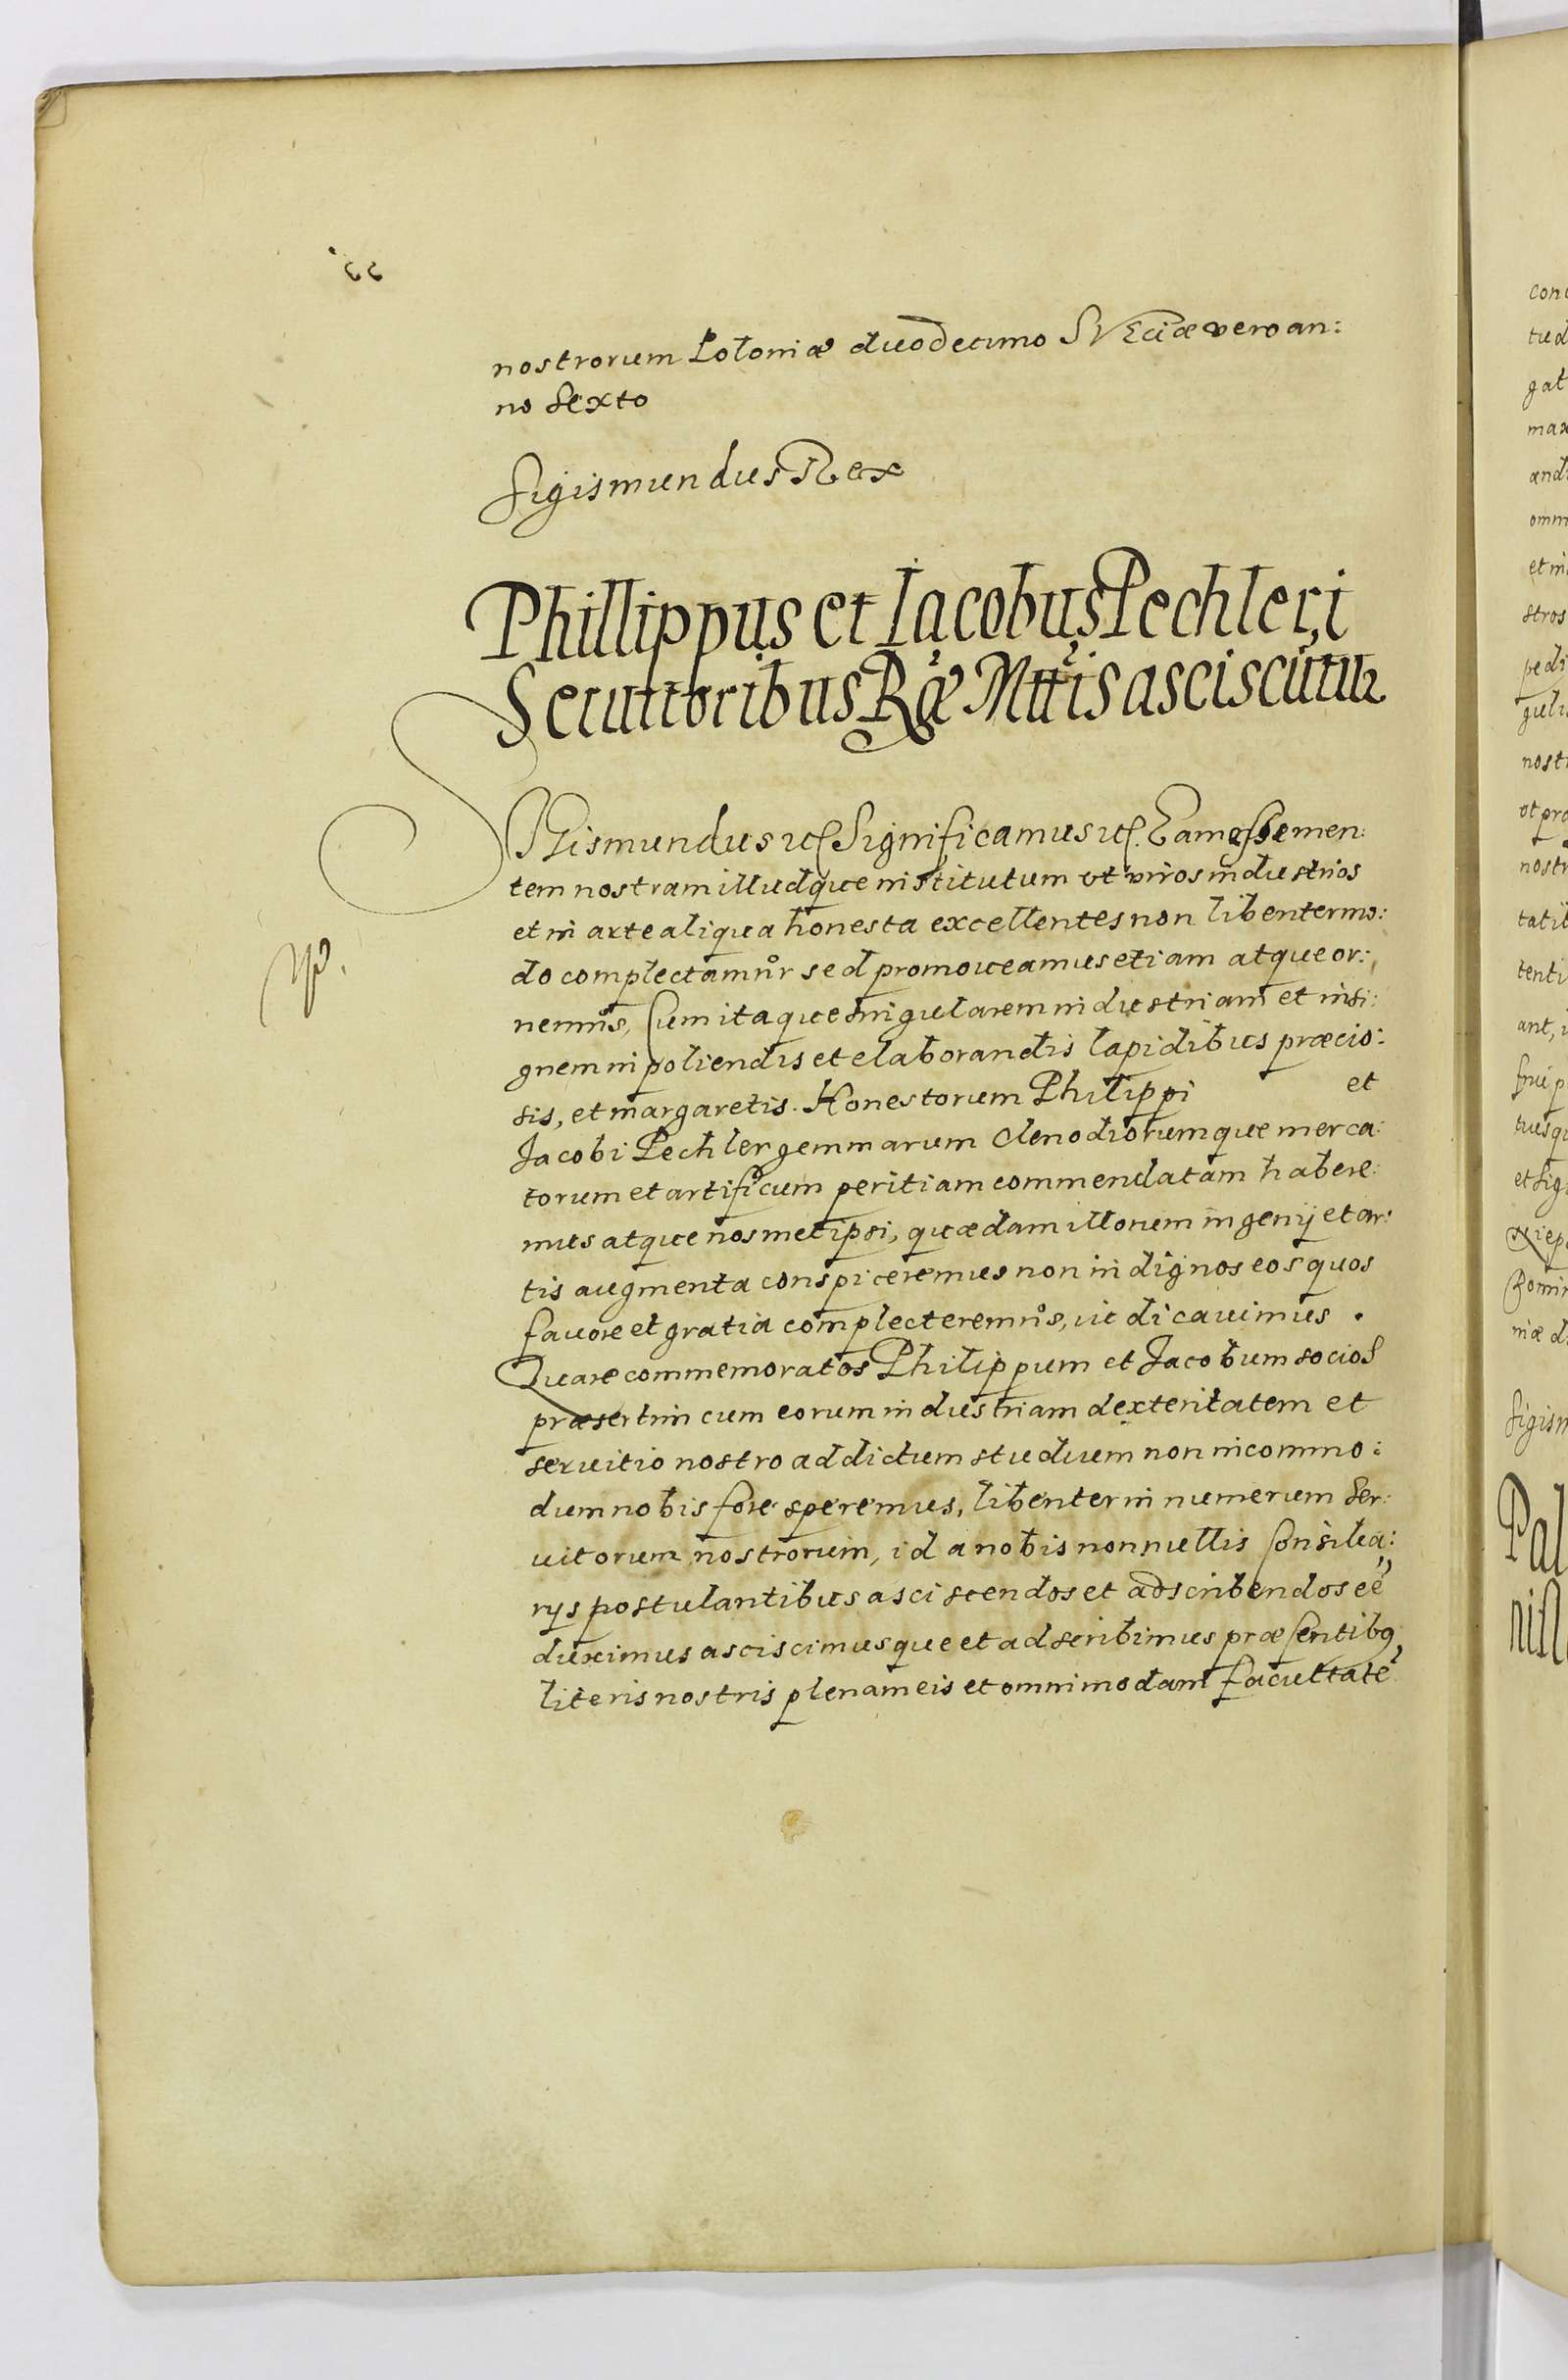 nostrorum Poloniæ duodecimo SVEciæ vero an:
no sexto
Sigismundus Rex
Phillippus et Iacobus Pechleri
Seruitoribus Ræ Mttis asciscūtur
SIGismundus etc Significamus etc. Eam esse men:
tem nostram illudque institutum vt viros industrios
et in arte aliqua honesta excellentes non libenter mo:
do complectamur sed promoueamus etiam atque or:
nemus, Cum itaque singularem industriam et insi:
gnem in poliendis et elaborandis lapidibus præcio:
sis, et margaretis. Honestorum Philippi et
Jacobi Pechler gemmarum clenodiorumque merca:
torum et artificum peritiam commendatam habere:
mus atque nosmetipsi, quædam illorum ingenij et ar:
tis augmenta conspiceremus non indignos eos quos
fauore et gratia complecteremus, iudicauimus.
Quare commemoratos Philippum et Jacobum socios
præsertim cum eorum industriam dexteritatem et
seruitio nostro addictum studium non incommo:
dum nobis fore speremus, libenter in numerum ser:
uitorum nostrorum, id a nobis nonnullis Consilia:
rys postulantibus asciscendos et adscribendos eē
duximus asciscimusque et adscribimus præsentibq
literis nostris plenam eis et omnimodam facultatē
con
tud
gat
max
and
omn
et in
stros
pedi
guli
nost
vt pro
nostr
tati
tenti
ant, i
frui p
tusq
et sig
Romin
niæ d
Sigism
Pal